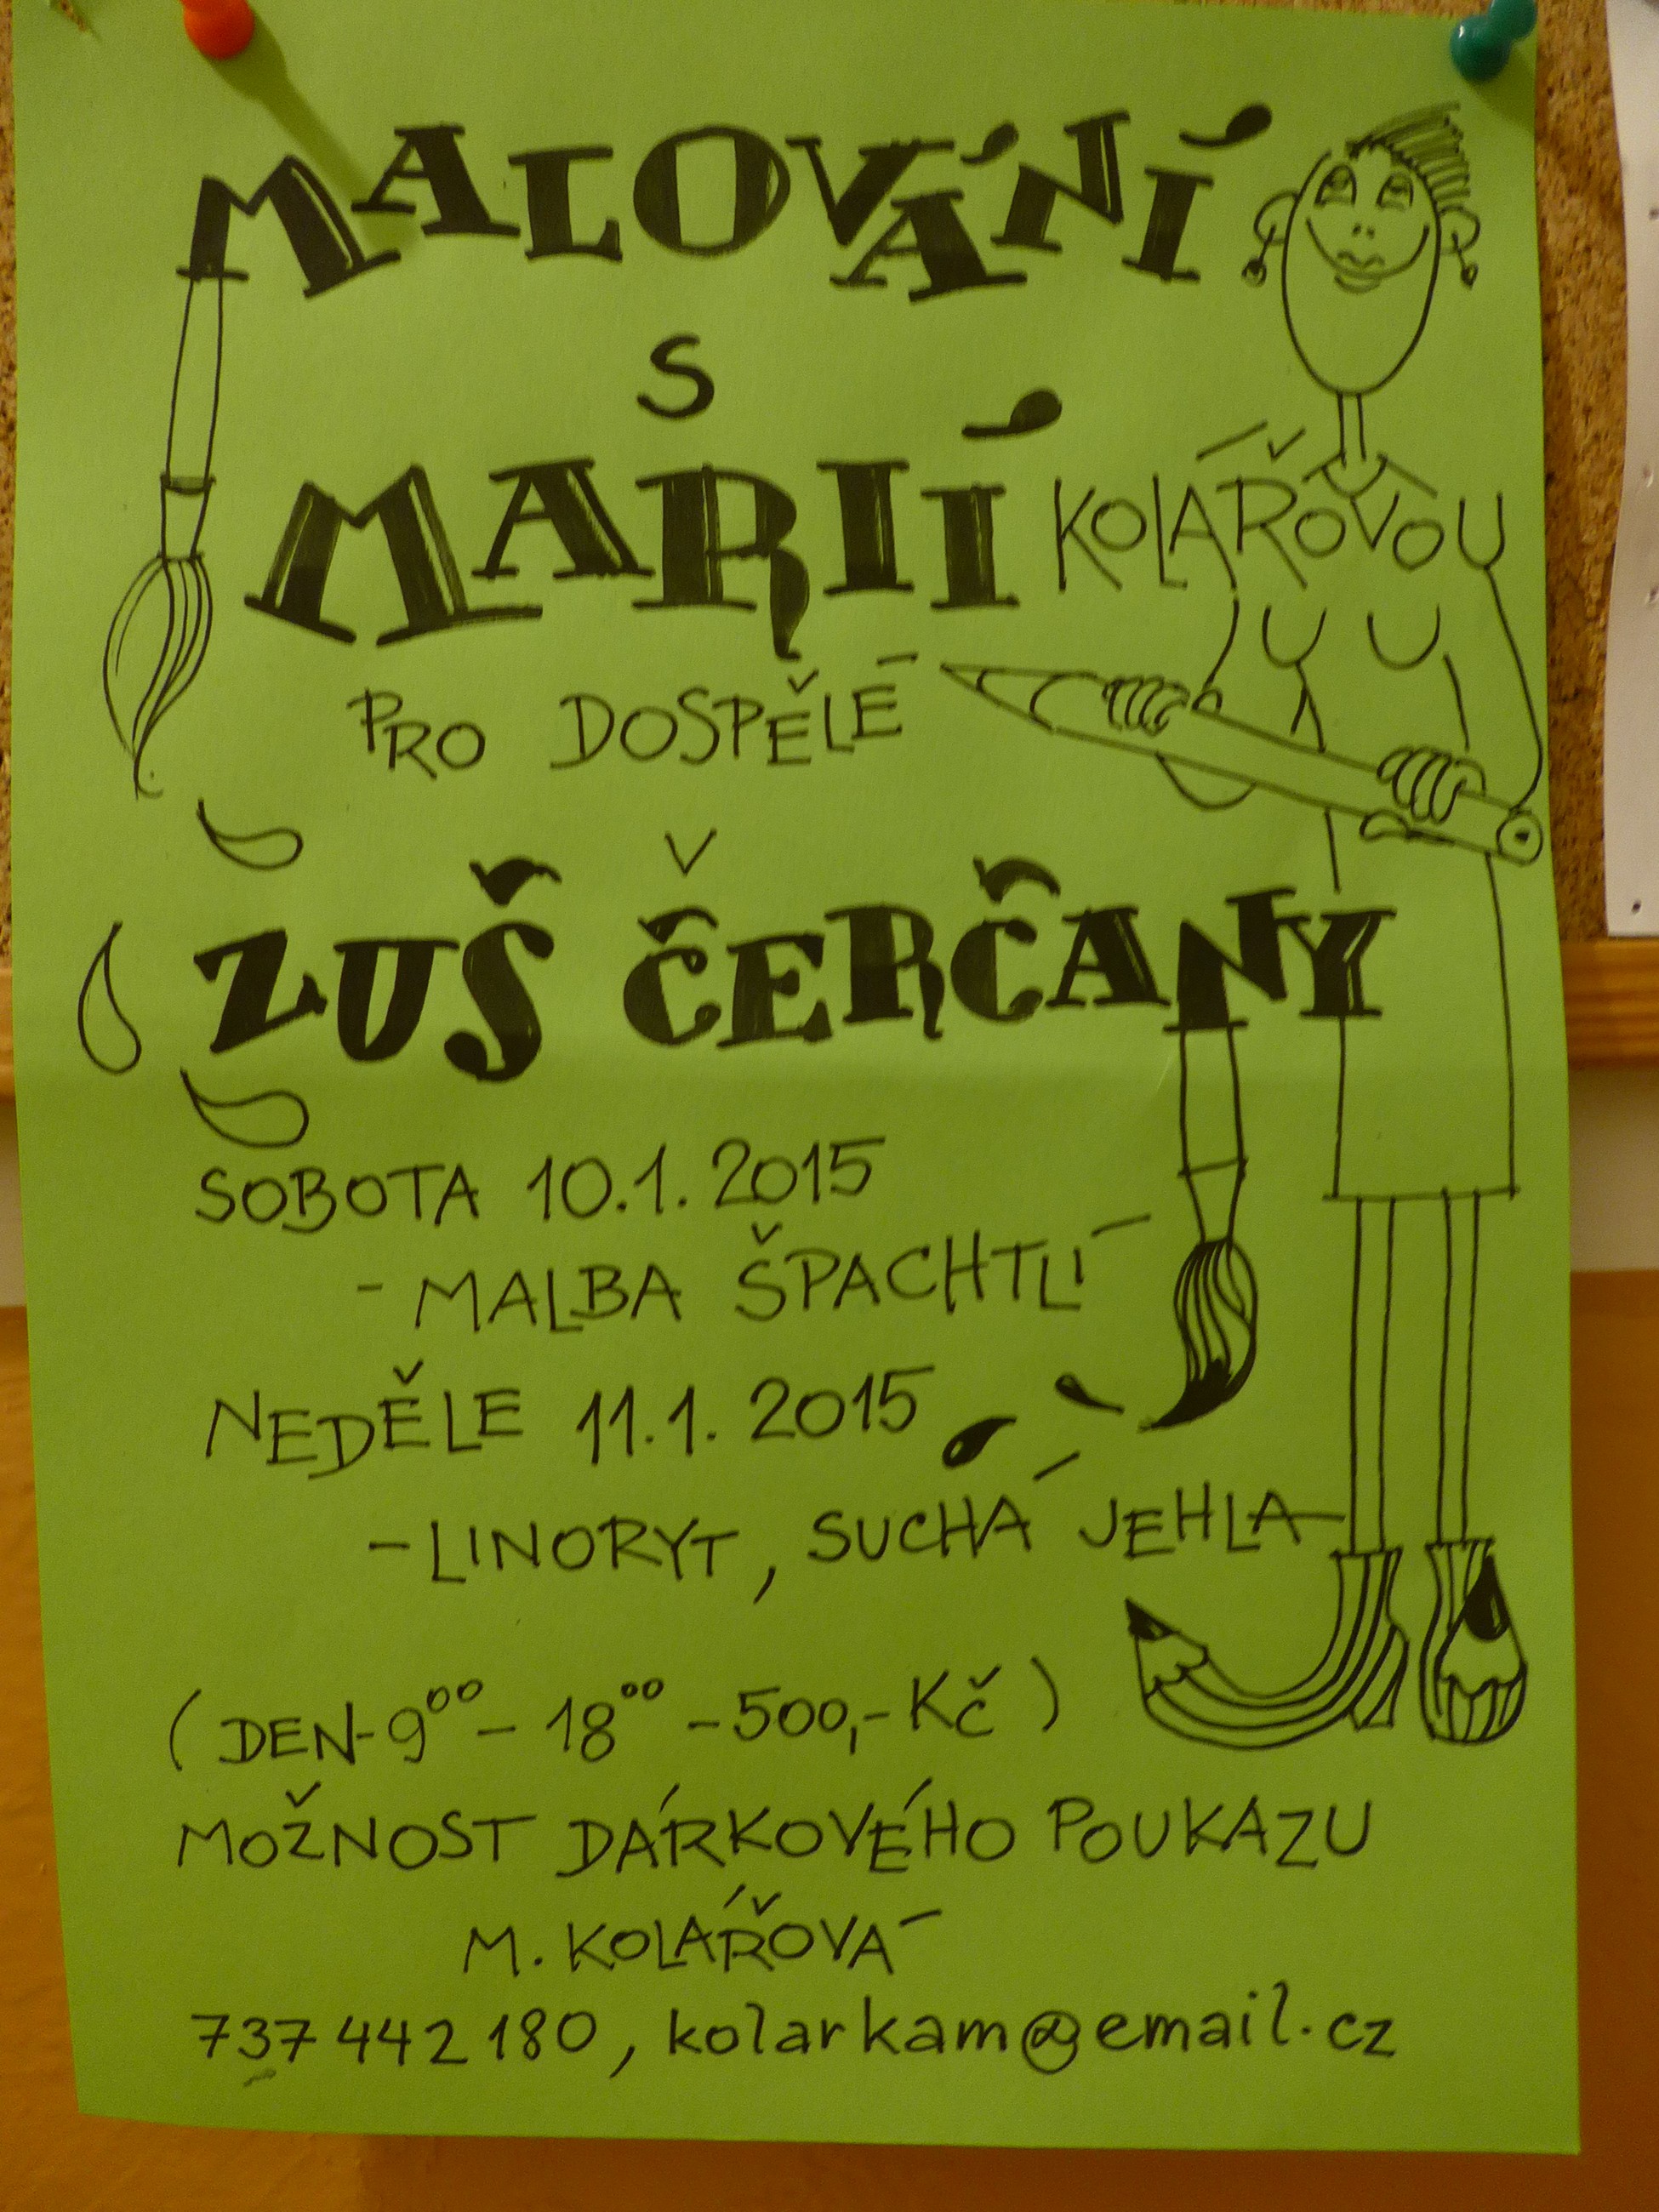 MALOVÁNÍ
S
MARIÍ KOLÁŘOVOU
PRO DOSPĚLÉ
V
ZUŠ ČERČANY
SOBOTA 10.1. 2015
- MALBA ŠPACHTLÍ
NEDĚLE 11.1. 2015
- LINORYT, SUCHÁ JEHLA
(DEN - 9⁰⁰ - 18⁰⁰ - 500,- Kč)
MOŽNOST DÁRKOVÉHO POUKAZU
M. KOLÁŘOVÁ
737 442 180, kolarkam@email.cz